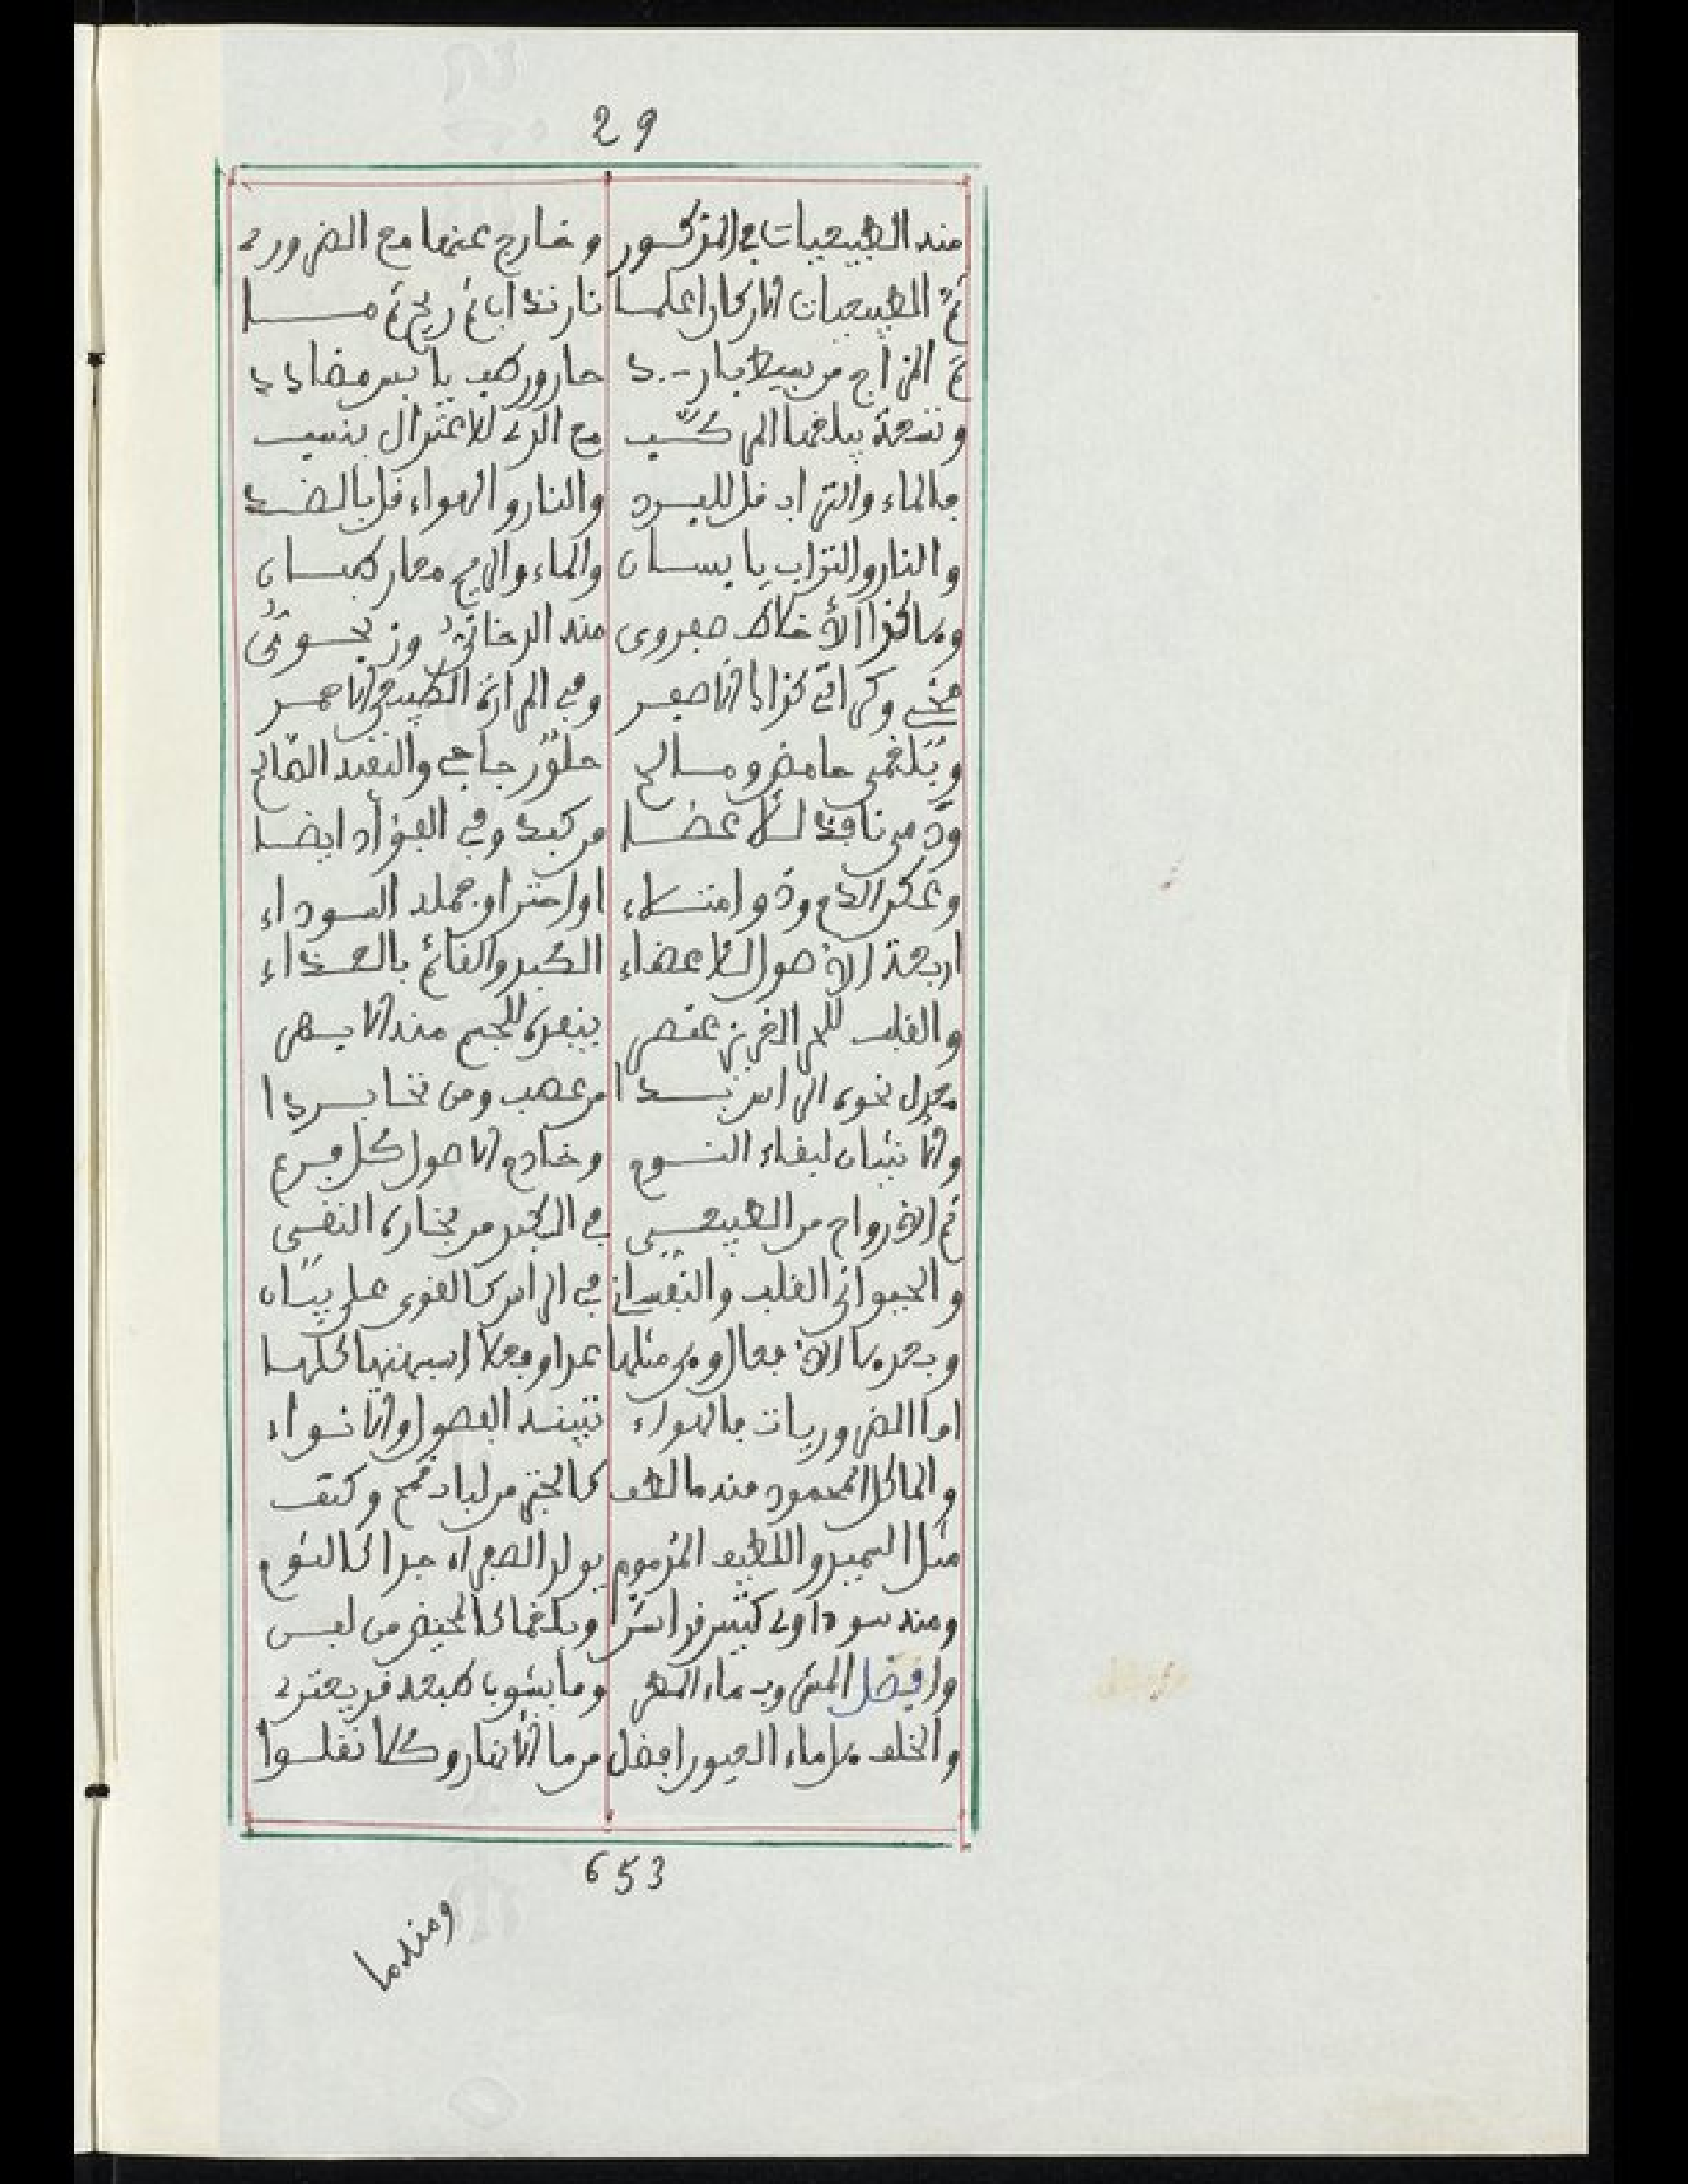 29
منه الطبيعيات في المذكور وخارج عنها مع الضروري
ثم الطبيعيات الاركان اعلما نار ثم ريح ثم ما
ثم المزاج من بسيط بارد حار ورطب يابس مضادد
وتسعة يبلغها المركب مع الذي للاعتدال ينسب
فالماء والتراب قل للبرد والنار والهواء قل بالضد
والنار والتراب يابسان والماء والريح معا رطبان
وهاكذا الأخلاط صفروى منه الدخاني وزنجوي
مخي وكراثي كذا الاصفر وفي المرارة الطبيعي الاحمر
وبلغمي حامض ومالح حلو زجاجي والتفه الصالح
ودم من نافذ للاعضا من كبد وفي الفؤاد ايضا
وعكر الدم وذو امتلاء او احتراق جملة السوداء
اربعة الاصول للاعضاء الكبد والقائم بالغذاء
والقلب للحر الغريز عنصر ينفذه للجسم منه الابهر
نحوه الراس من عصب ومن نخا بردا
والانثيان لبقاء النوع وخادم الاصول كل فرع
ثم الارواح من الطبيعي في الكبد من بخاره النقي
والحيواني القلب والنفساني في الراس كالقوى على بيان
وبعدها الافعال وهي مثلها عدا وفعلا
اما الضروريات فالهواء تبينه الفصول والانواء
والماكل المحمود منه ما لطف كالخبز من لباب قمح وكتف
مثل السميد واللطيف المذموم يولد الصفراء جدا كالثوم
ومنه سوداوي كتيس قد اسن وبلغما كالحيض من لبن
وافضل المشروب ماء المطر وما يشوبا طبعه قد يعتري
والخلف هل ماء العيون افضل من ما الانهار وكلا نقلوا
653
ومنه ما